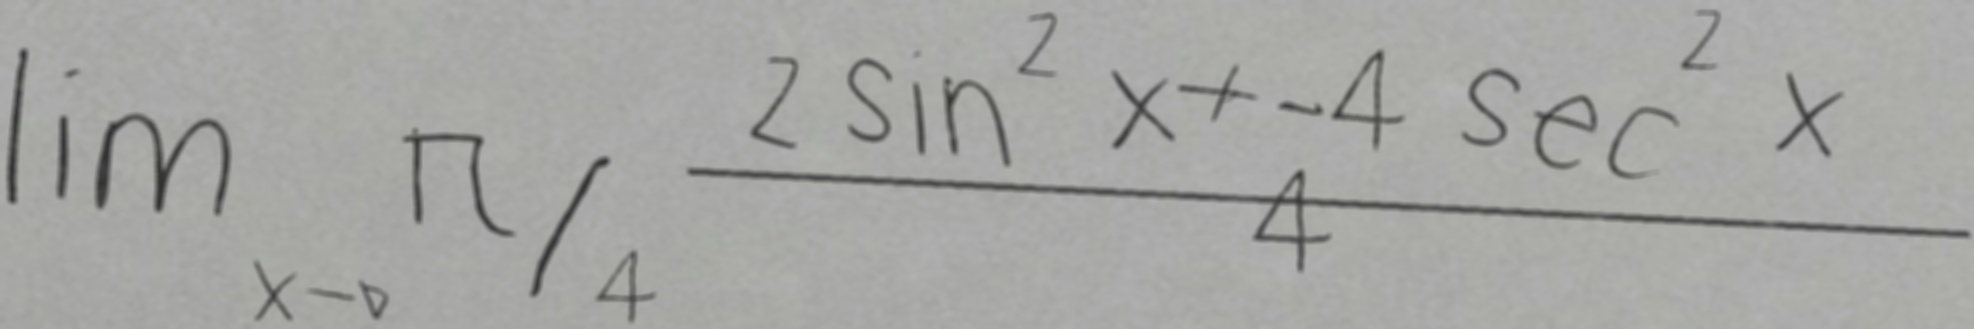 \lim_{x \to \pi/4} \frac{2 \sin^2 x + -4 \sec^2 x}{4}